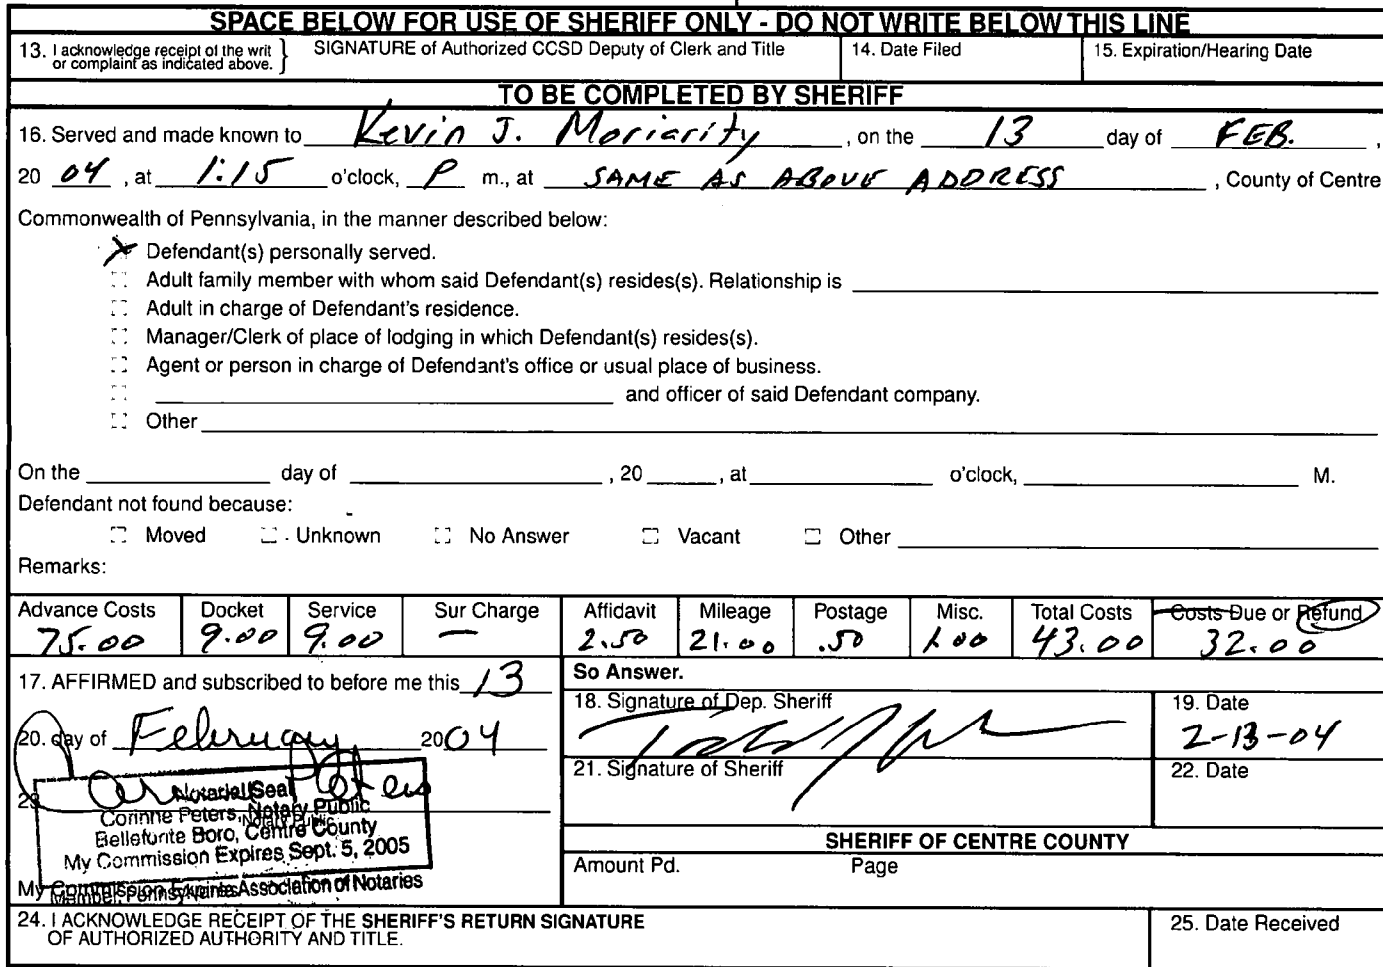 SPACE BELOW FOR USE OF SHERIFF ONLY - DO NOT WRITE BELOW THIS LINE
13. I acknowledge receipt of the writ or complaint as indicated above. } SIGNATURE of Authorized CCSD Deputy of Clerk and Title 14. Date Filed 15. Expiration/Hearing Date
TO BE COMPLETED BY SHERIFF
16. Served and made known to Kevin J. Moriarity, on the 13 day of FEB.,
20 04, at 1:15 o'clock, P m., at SAME AS ABOVE ADDRESS, County of Centre
Commonwealth of Pennsylvania, in the manner described below:
X Defendant(s) personally served.
Adult family member with whom said Defendant(s) resides(s). Relationship is
Adult in charge of Defendant's residence.
Manager/Clerk of place of lodging in which Defendant(s) resides(s).
Agent or person in charge of Defendant's office or usual place of business.
and officer of said Defendant company.
Other
On the day of , 20 , at o'clock, M.
Defendant not found because:
Moved Unknown No Answer Vacant Other
Remarks:
Advance Costs Docket Service Sur Charge Affidavit Mileage Postage Misc. Total Costs Costs Due or Refund
75.00 9.00 9.00 — 2.50 21.00 .50 1.00 43.00 32.00
17. AFFIRMED and subscribed to before me this 13
So Answer.
18. Signature of Dep. Sheriff 19. Date
20. day of February 2004
2-13-04
21. Signature of Sheriff 22. Date
23
Notarial Seal
Corinne Peters, Notary Public
Bellefonte Boro, Centre County
My Commission Expires Sept. 5, 2005
SHERIFF OF CENTRE COUNTY
Amount Pd. Page
My Commission Expires
Member, Pennsylvania Association of Notaries
24. I ACKNOWLEDGE RECEIPT OF THE SHERIFF'S RETURN SIGNATURE
OF AUTHORIZED AUTHORITY AND TITLE.
25. Date Received